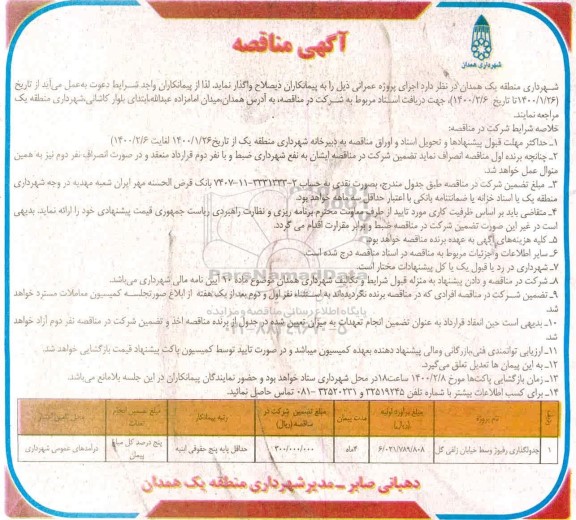 آگهی مناقصه
شهرداری همدان
شهرداری منطقه یک همدان در نظر دارد اجرای پروژه عمرانی ذیل را به پیمانکاران ذیصلاح واگذار نماید. لذا از پیمانکاران واجد شرایط دعوت به عمل می‌آید از تاریخ
(۱۴۰۰/۱/۲۶تا تاریخ ۱۴۰۰/۲/۶)، جهت دریافت اسناد مربوط به شرکت در مناقصه، به آدرس همدان،میدان امامزاده عبدالله،ابتدای بلوار کاشانی،شهرداری منطقه یک
مراجعه نمایند.
خلاصه شرایط شرکت در مناقصه:
۱ـ حداکثر مهلت قبول پیشنهادها و تحویل اسناد و اوراق مناقصه به دبیرخانه شهرداری منطقه یک از تاریخ۱۴۰۰/۱/۲۶ لغایت ۱۴۰۰/۲/۶)
۲ـ چنانچه برنده اول مناقصه انصراف نماید تضمین شرکت در مناقصه ایشان به نفع شهرداری ضبط و با نفر دوم قرارداد منعقد و در صورت انصراف نفر دوم نیز به همین
منوال عمل خواهد شد.
۳ـ مبلغ تضمین شرکت در مناقصه طبق جدول مندرج، بصورت نقدی به حساب ۲-۳۳۳۱۳۳۳-۱۱-۷۴۰۷ بانک قرض الحسنه مهر ایران شعبه مهدیه در وجه شهرداری
منطقه یک یا اسناد خزانه یا ضمانتنامه بانکی با اعتبار حداقل سه ماهه خواهد بود.
۴ـ متقاضی باید بر اساس ظرفیت کاری مورد تایید از طرف معاونت محترم برنامه ریزی و نظارت راهبردی ریاست جمهوری قیمت پیشنهادی خود را ارائه نماید. بدیهی
است در غیر این صورت تضمین شرکت در مناقصه ضبط و برابر مقررات اقدام می گردد.
۵ـ کلیه هزینه‌های آگهی به عهده برنده مناقصه خواهد بود.
۶ـ سایر اطلاعات و جزئیات مربوط به مناقصه در اسناد مناقصه درج شده است.
۷ـ شهرداری در رد یا قبول یک یا کل پیشنهادات مختار است.
۸ـ شرکت در مناقصه و دادن پیشنهاد به منزله قبول شرایط و تکالیف شهرداری همدان موضوع ماده ۱۰ آیین نامه مالی شهرداری می‌باشد.
۹ـ تضمین شرکت در مناقصه افرادی که در مناقصه برنده نگردیده‌اند به استثناء نفر اول و دوم بعد از یک هفته از ابلاغ صورتجلسه کمیسیون معاملات مسترد خواهد
شد.
۱۰ـ بدیهی است حین انعقاد قرارداد به عنوان تضمین انجام تعهدات به میزان تعیین شده در جدول از برنده مناقصه اخذ و تضمین شرکت در مناقصه نفر دوم آزاد خواهد
شد.
۱۱ـ ارزیابی توانمندی فنی،بازرگانی ومالی پیشنهاد دهنده بعهده کمیسیون میباشد و در صورت تایید توسط کمیسیون پاکت پیشنهاد قیمت بازگشایی خواهد شد.
۱۲ـ به این پیمان ها تعدیل تعلق می‌گیرد.
۱۳ـ زمان بازگشایی پاکت‌ها مورخ ۱۴۰۰/۲/۸ ساعت۱۸در محل شهرداری ستاد خواهد بود و حضور نمایندگان پیمانکاران در این جلسه بلامانع می‌باشد.
۱۴ـ برای کسب اطلاعات بیشتر با شماره تلفن ۳۲۵۱۹۲۴۵ و ۳۲۵۲۰۲۳۱ -۰۸۱ تماس حاصل نمائید.
ردیف نام پروژه مبلغ برآورد اولیه (ریال) مدت پیمان مبلغ تضمین شرکت در مناقصه(ریال) رتبه پیمانکار مبلغ تضمین انجام تعهدات محل تامین اعتبار
۱ جدولگذاری رفیوژ وسط خیابان زاغی گل ۶/۰۲۱/۷۸۹/۸۰۸ ۴ماه ۳۰۰/۰۰۰/۰۰۰ حداقل پایه پنج حقوقی ابنیه پنج درصد کل مبلغ پیمان درآمدهای عمومی شهرداری
دهبانی صابر ـ مدیر شهرداری منطقه یک همدان
ParsNamadData
پایگاه اطلاع رسانی مناقصه و مزایده